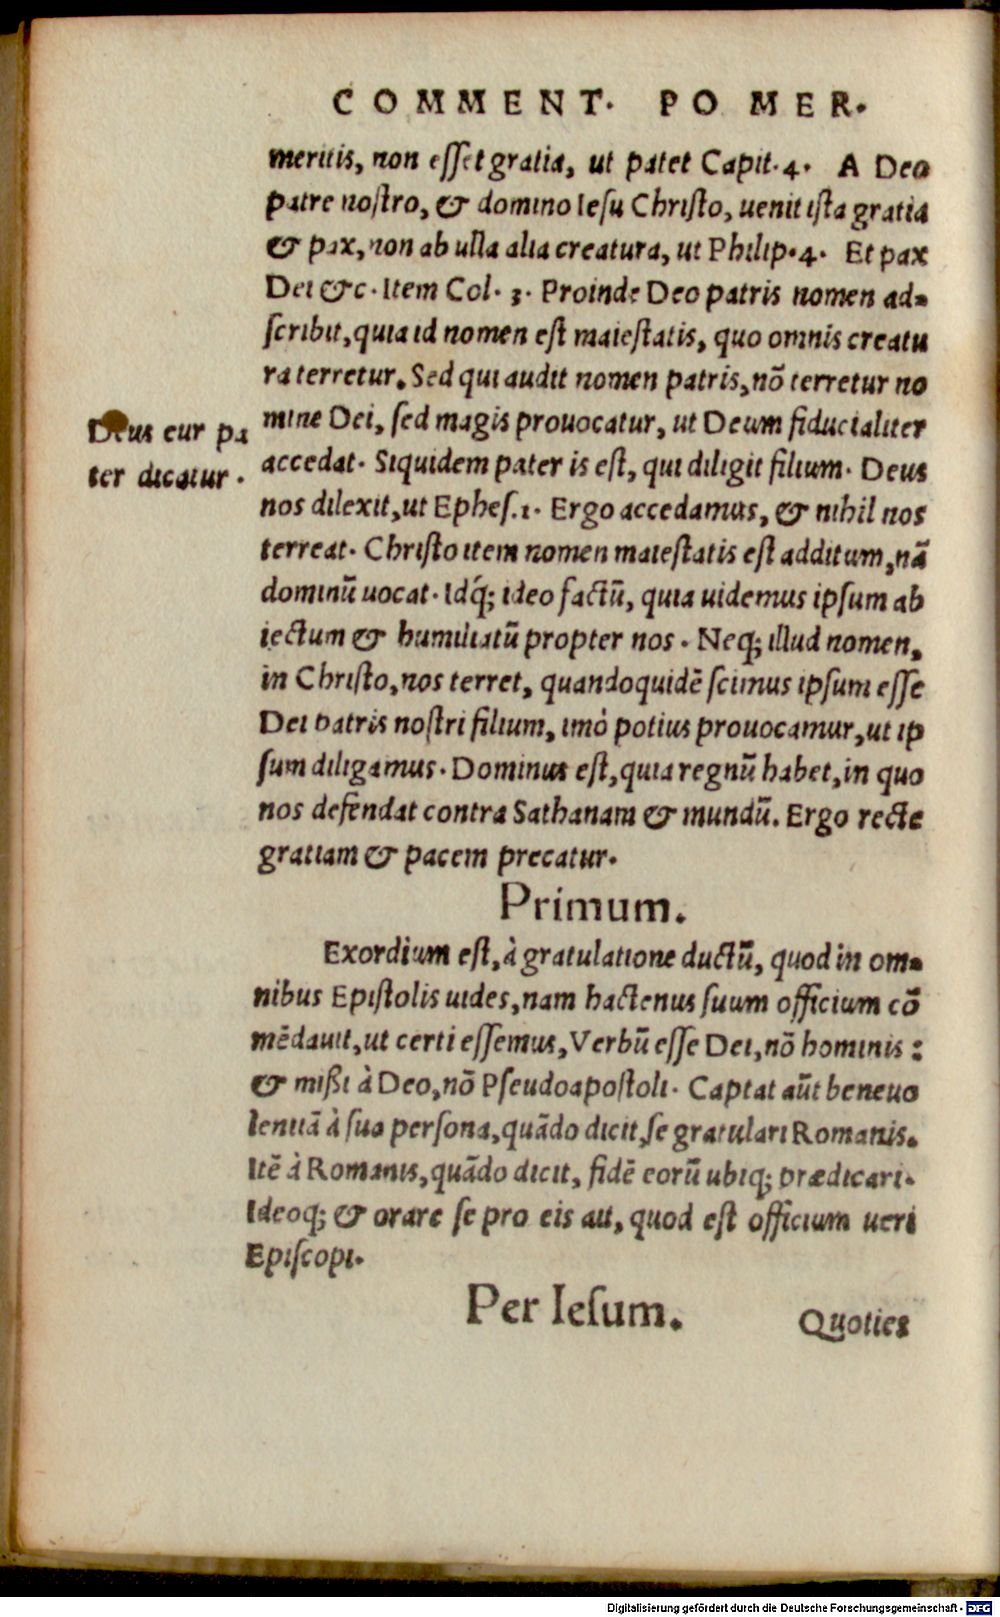 COMMENT. PO MER.
meritis, non esset gratia, ut patet Capit. 4. A Deo
patre nostro, & domino Iesu Christo, uenit ista gratia
& pax, non ab ulla alia creatura, ut Philip. 4. Et pax
Dei &c. Item Col. 3. Proinde Deo patris nomen ad-
scribit, quia id nomen est maiestatis, quo omnis creatu
ra terretur. Sed qui audit nomen patris, nõ terretur no
mine Dei, sed magis prouocatur, ut Deum fiducialiter
Deus cur pa
ter dicatur.
accedat. Siquidem pater is est, qui diligit filium. Deus
nos dilexit, ut Ephes. 1. Ergo accedamus, & nihil nos
terreat. Christo item nomen maiestatis est additum, nã
dominũ uocat. Idq́; ideo factũ, quia uidemus ipsum ab
iectum & humiliatũ propter nos. Neq; illud nomen,
in Christo, nos terret, quandoquidẽ scimus ipsum esse
Dei patris nostri filium, imò potius prouocamur, ut ip
sum diligamus. Dominus est, quia regnũ habet, in quo
nos defendat contra Sathanam & mundũ. Ergo recte
gratiam & pacem precatur.
Primum.
Exordium est, à gratulatione ductũ, quod in om-
nibus Epistolis uides, nam hactenus suum officium cõ
mẽdauit, ut certi essemus, Verbũ esse Dei, nõ hominis:
& mißi à Deo, nõ Pseudoapostoli. Captat aũt beneuo
lentiã à sua persona, quãdo dicit, se gratulari Romanis.
Itẽ à Romanis, quãdo dicit, fidẽ eorũ ubiq; prædicari.
Ideoq; & orare se pro eis ait, quod est officium ueri
Episcopi.
Per Iesum.
Quoties
Digitalisierung gefördert durch die Deutsche Forschungsgemeinschaft - DFG